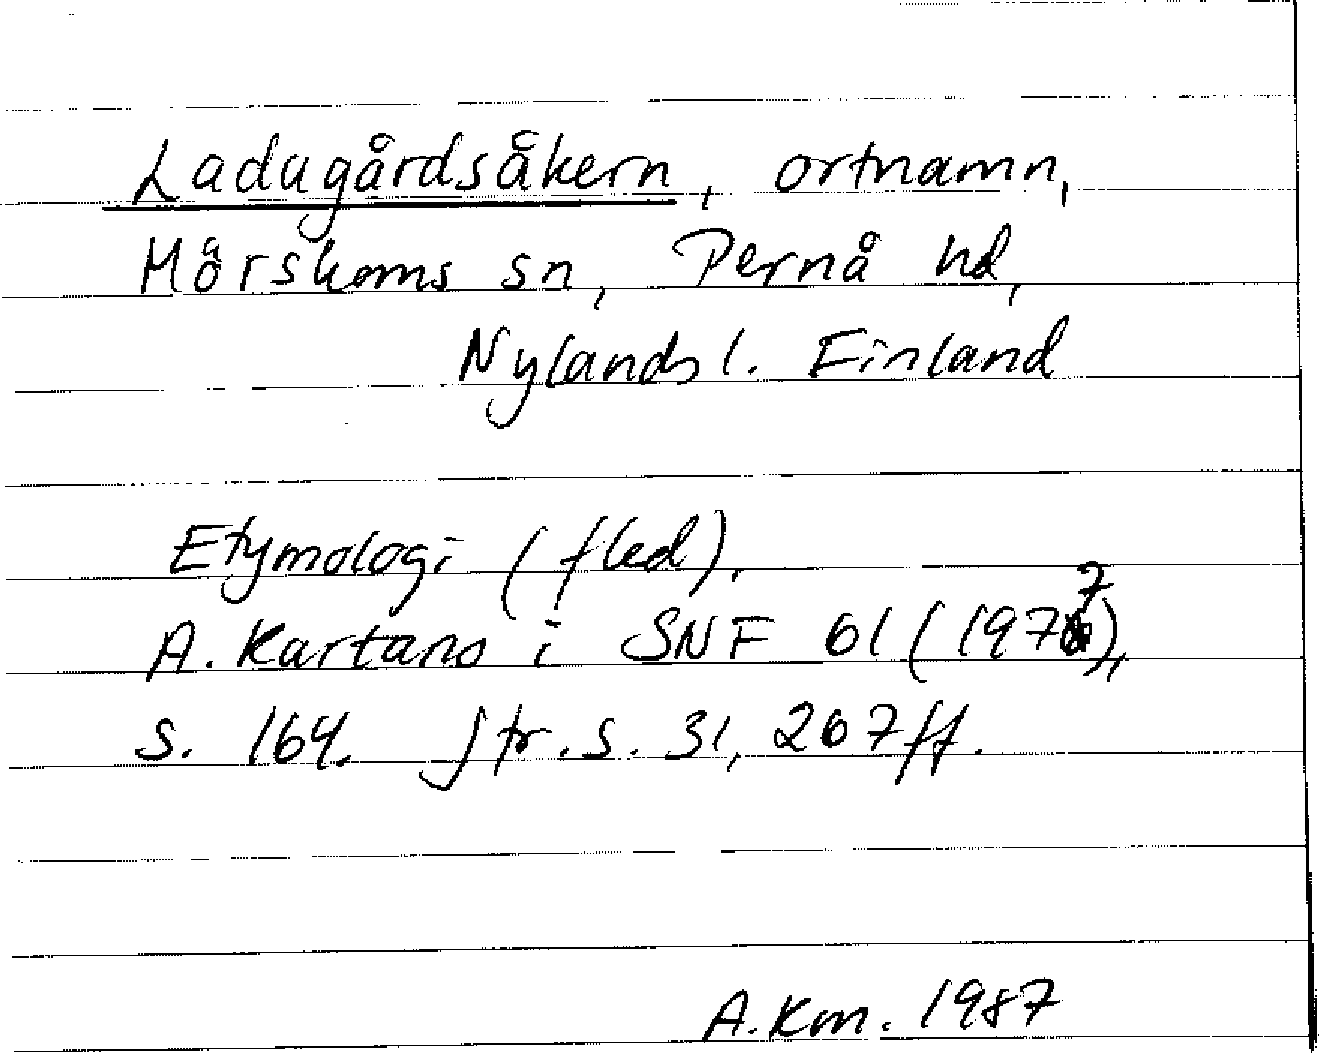 Ladugårdsåkern, ortnamn,
Mörskoms sn, Pernå hd,
Nylands l. Finland
Etymologi (fled).
A. Kartano i SNF 61 (1977),
s. 164. Jfr. s. 31, 267 ff.
A.Km. 1987